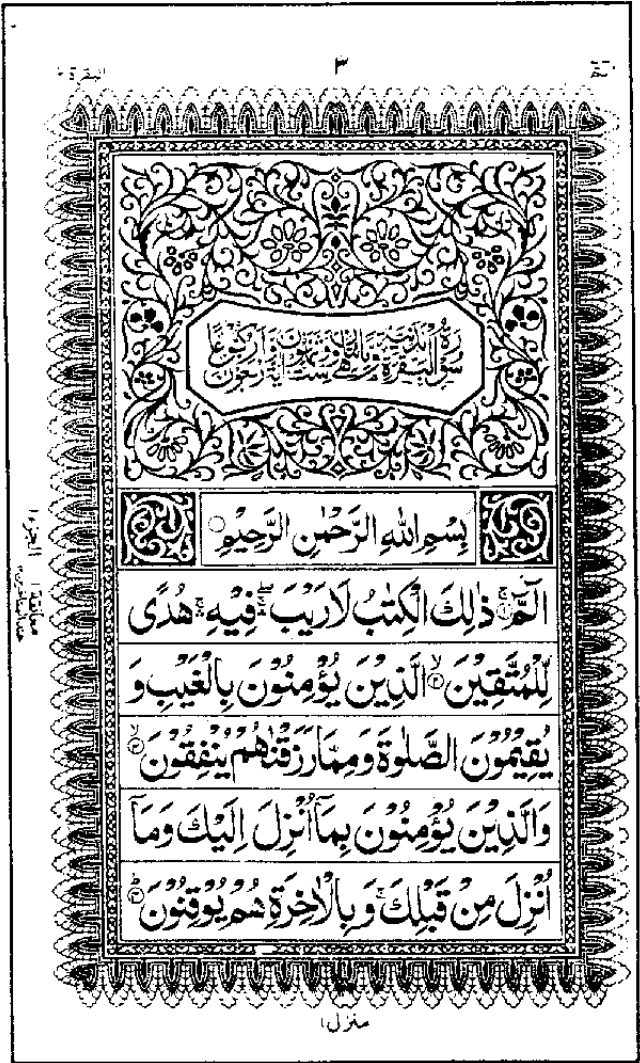 البقرة ٢
٣
الٓمّٓ
سُوْرَةُ الْبَقَرَةِ مَدَنِيَّةٌ وَّهِيَ مِائَتَانِ وَسِتٌّ وَّثَمَانُوْنَ اٰيَةً وَّاَرْبَعُوْنَ رُكُوْعًا
بِسْمِ اللّٰهِ الرَّحْمٰنِ الرَّحِيْمِ
الٓمّٓ ۚ﴿۱﴾ ذٰلِكَ الْكِتٰبُ لَا رَيْبَ ۛۖ فِيْهِ ۛۚ هُدًى
لِّلْمُتَّقِيْنَ ۙ﴿۲﴾ الَّذِيْنَ يُؤْمِنُوْنَ بِالْغَيْبِ وَ
يُقِيْمُوْنَ الصَّلٰوةَ وَمِمَّا رَزَقْنٰهُمْ يُنْفِقُوْنَ ۙ﴿۳﴾
وَالَّذِيْنَ يُؤْمِنُوْنَ بِمَآ اُنْزِلَ اِلَيْكَ وَمَآ
اُنْزِلَ مِنْ قَبْلِكَ ۚ وَبِالْاٰخِرَةِ هُمْ يُوْقِنُوْنَ ؕ﴿۴﴾
الجزء ١
معانقة ١
منزل ١